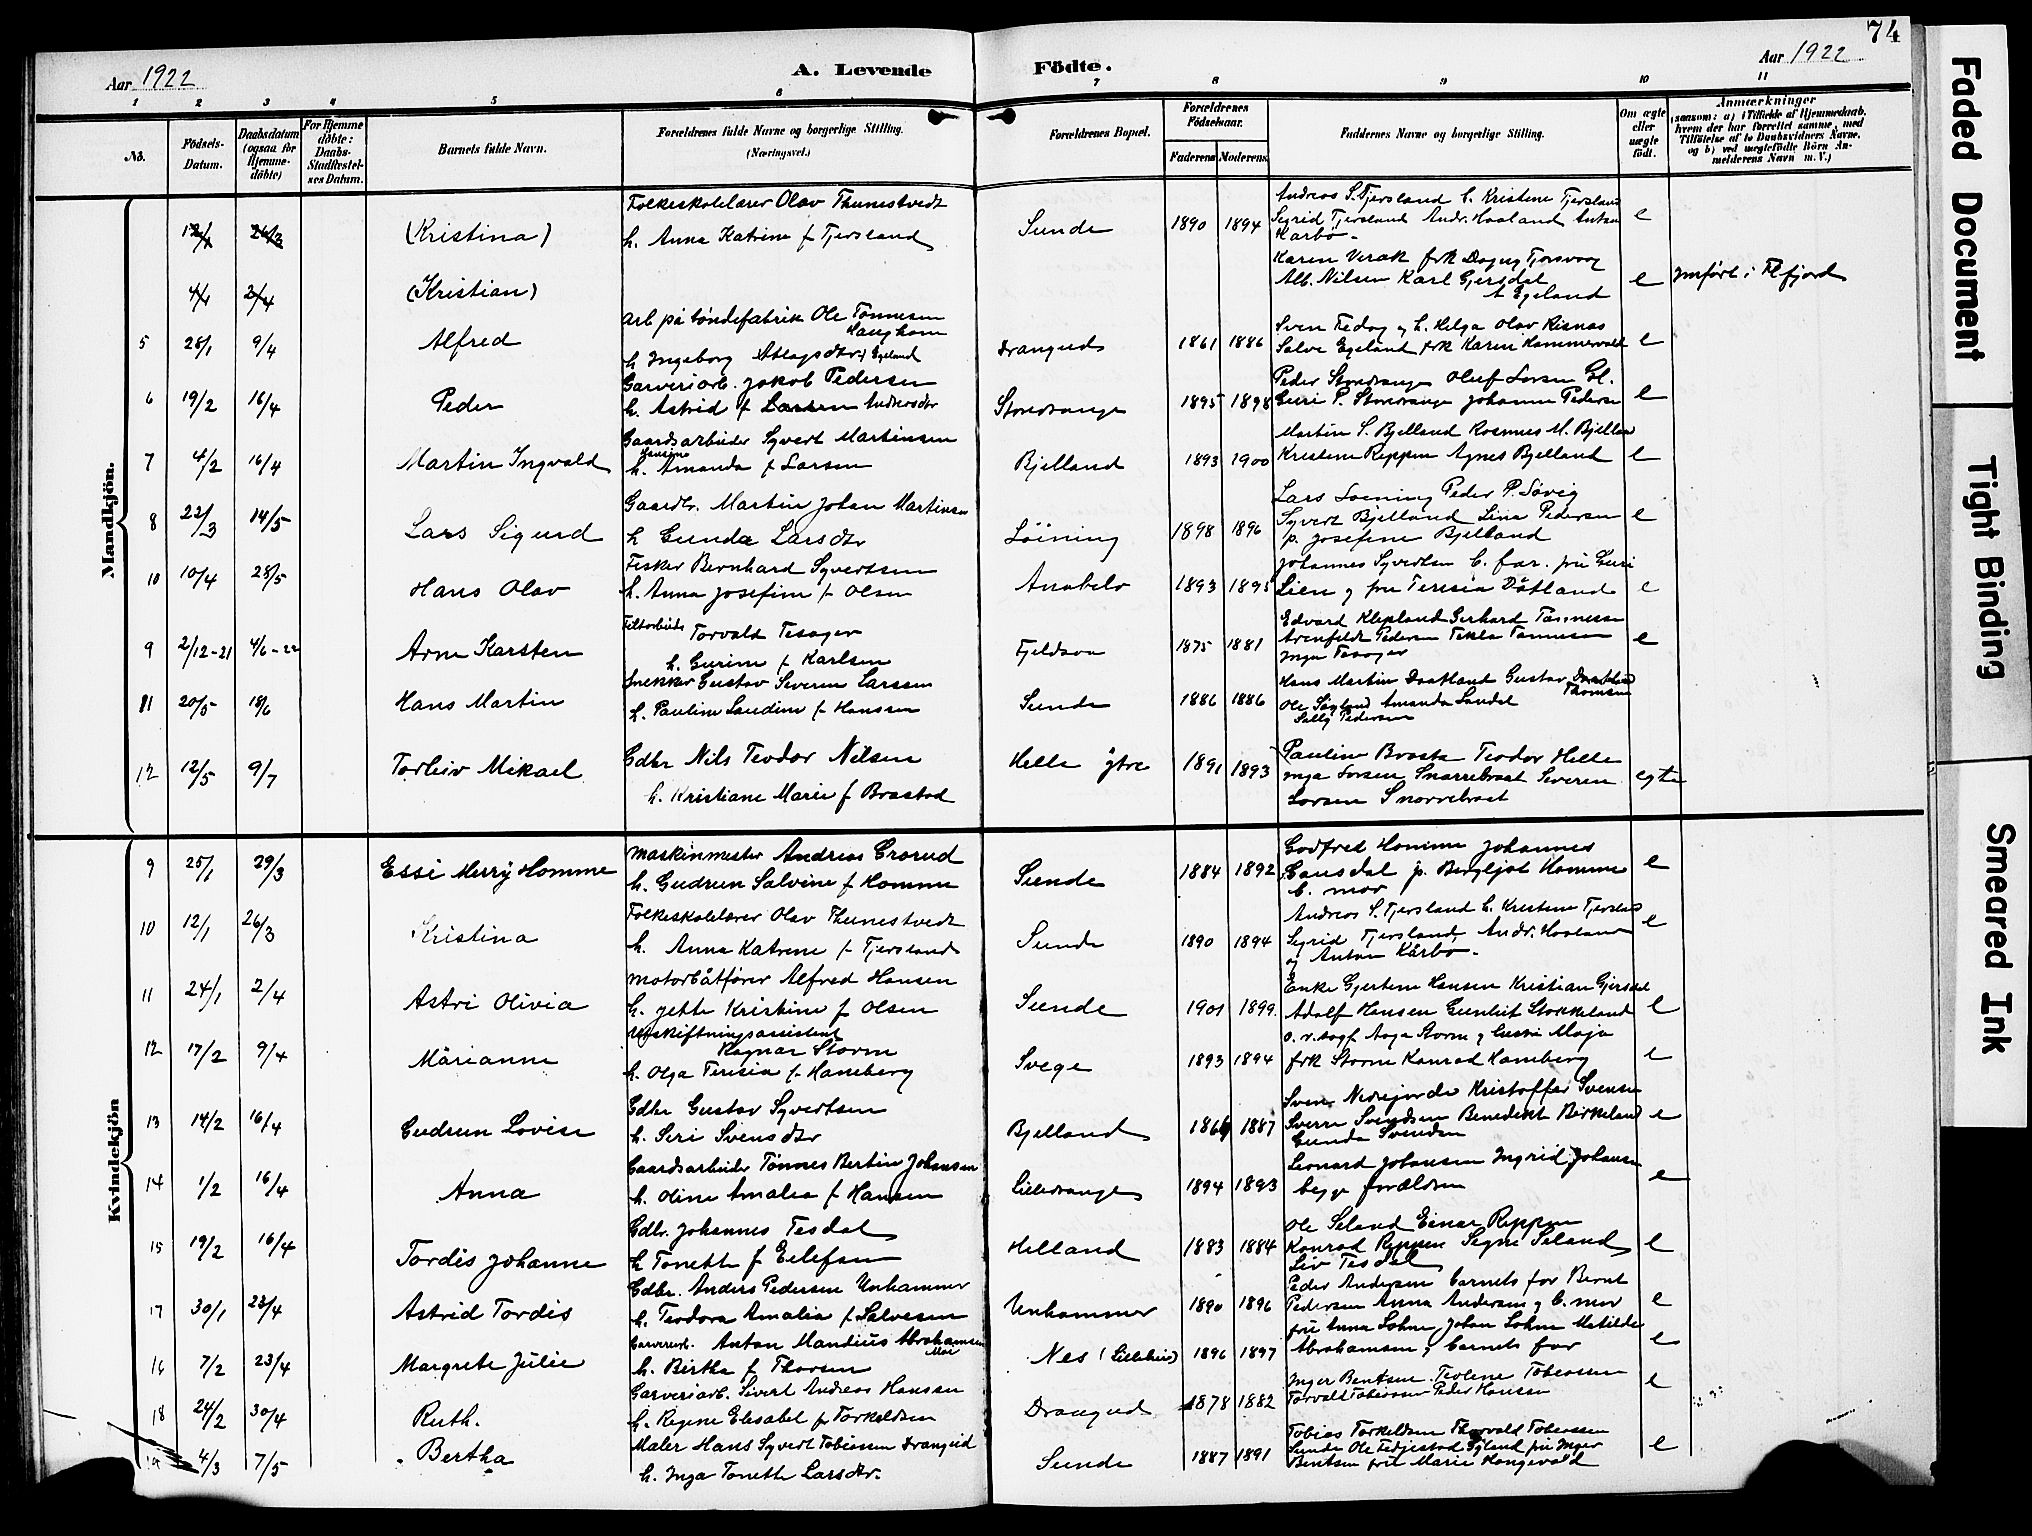 74
Aar 1922
A. Levende
Födte.
Aar 1922
1 2 3 4 5 6 7 8 9 10 11
No.
Födsels-
Datum.
Daabsdatum
(ogsaa for
Hjemme-
döbte)
For Hjemme
döbte:
Daabs-
Stadfæstel-
ses Datum.
Barnets fulde Navn.
Forældrenes fulde Navne og borgerlige Stilling.
(Næringsvei.)
Forældrenes Bopæl.
Forældrenes
Födselsaar.
Faderens Moderens.
Faddernes Navne og borgerlige Stilling.
Om ægte
eller
uægte
født.
Anmærkninger
(saasom: a) i Tilfælde af Hjemmedaab,
hvem der har forrettet samme, med
Tilføielse af to Daabsvidners Navne,
og b) ved uægtefödte Börn An-
melderens Navn m. V.)
Mandkjön.
12/1 26/3 (Kristina)
Folkeskolelærer Olav Thunestvedt
h. Anna Katrine f Tjersland
Sunde 1890 1894
Andreas S. Tjersland h. Kristene Tjersland
Sigrid Tjersland Andr. Haaland Anton
Karbö. e
4/1 2/4 (Kristian)
Karen Verak frk Dagny Tjorsvaag
Alb. Nilsen Karl Gjersdal
A Egeland e Innført i Flefjord
5 28/1 9/4 Alfred
Arb på töndefabrik Ole Tönnesen
Haughom
h Ingeborg Atlagsdtr f Egeland
Drangeid 1861 1886
Sven Fedog og h. Helga Olav Risnas
Salve Egeland frk Karen Hammervold e
6 19/2 16/4 Peder
Garveriarb. Jakob Pedersen
h. Astrid f Larsen Andersdtr
Storedrange 1895 1898
Peder Storedrange Oluf Larsen
Guri P. Storedrange Johanne Pedersen e
7 4/2 16/4 Martin Ingvald
Gaardsarbeider Syvert Martinsen
Hansine
h. Amanda f Larsen
Bjelland 1893 1900
Martin S. Bjelland Rasmus M. Bjelland
Kristene Reppen Agnes Bjelland e
8 22/3 14/5 Lars Sigurd
Gaardbr. Martin Johan Martinsen
h Gunda Larsdtr
Löining 1898 1896
Lars Loening Peder P. Sövig
Syvert Bjelland Lina Pedersen
p. Josefine Bjelland e
10 10/4 28/5 Hans Olav
Fisker Bernhard Syvertsen
h. Anna Josefine f Olsen
Anabelö 1893 1895
Johannes Syvertsen b. far. fru Guri
Lien og fru Teresia Dåtland e
9 2/12-21 4/6-22 Arne Karsten
Torvald Tesager
h. Gurine f Karlsen
Fjeldsaa 1875 1881
Edvard Klepland Gerhard Tønnesen
Arenfeldt Pedersen Tekla Tønnesen
Inga Tesager e
11 20/5 18/6 Hans Martin
Snekker Gustav Severin Larsen
h. Pauline Landine f Hansen
Sunde 1886 1886
Hans Martin Daatland Gustav Daatland
Thomsen
Ole Amanda Sandal
Selly Pedersen
12 12/5 9/7 Torleiv Mikael
Gdbr Nils Teodor Nilsen
h. Kristiane Marie f Brastad
Helle ytre 1891 1893
Pauline Brasta Teodor Helle
Inga Larsen Snarrebrast Severin
Larsen Snorrebrast egte
Kvindekjön
9 25/1 29/3 Essi Merry Homme
Maskinmester Andreas Grorud
h. Gudrun Salvine f Homme
Sunde 1884 1892
Godfred Homme Johannes
Gausdal p. Bergljot Homme
b. mor e
10 12/1 26/3 Kristina
Folkeskolelærer Olav Thunestvedt
h. Anna Katrine f Tjersland
Sunde 1890 1894
Andreas S. Tjersland h. Kristene Tjersland
Sigrid Tjersland, Andr. Haaland
og Anton Kårbö. e
11 24/1 2/4 Astri Olivia
Motorbåtförer Alfred Hansen
h. Jette Kristine f Olsen
Sunde 1901 1899.
Enke Gjertine Hansen Kristian Gjersdal
Adolf Hansen Gunleif Stokkeland e
12 17/2 9/4 Marianne
Utskiftningsassistent
Ragnar Storm
h. Olga Teresia f Haneberg
Svege 1893 1894
o.r.sagf. Aage Storm og Gussi Maja
frk Storm Konrad Haneberg e
13 14/2 16/4 Gudrun Lovise
Gdbr Gustav Syvertsen
h. Seri Svensdtr
Bjelland 1864 1887
Sven Nesejorde Kristoffer Svensen
Sverre Svendsen Benedikt Birkeland
Gunda Svendsen e
14 1/2 16/4 Anna
Gaardsarbeider Tönnes Bertin Johansen
h. Oline Amalia f Hansen
Lilledrange 1894 1893
Leonard Johansen Ingrid Johansen
begge forældren e
15 19/2 16/4 Tordis Johanne
Gdbr. Johannes Tesdal
h Tonette f Eilefsen
Helland 1883 1884
Ole Seland Einar Reppen
Konrad Reppen Signe Seland
Liv Tesdal e
17 30/1 23/4 Astrid Tordis
Gdbr. Anders Pedersen Unhammer
h. Teodora Amalia f Salvesen
Unhammer 1890 1896
Peder Andersen barnets far Bernt
Pedersen Anna Andersen og b. mor e
16 7/2 23/4 Margrete Julie
Garveriarb. Anton Mandius Abrahamsen
Moi
h. Birtha f Thorsen
Nes (Lilleheia) 1896 1897
fru Anna Lohne Johan Lohne Matilde
Abrahamsen og barnets far e
18 24/2 30/4 Ruth.
Garveriarb. Sivert Andreas Hansen
h. Regine Elisabet f Torkeldsen
Drangeid 1878 1882
Inger Bentsen. Teoline Tobiassen
Torvald Tobiassen Peder Hansen e
19 4/3 7/5 Bertha
Maler Hans Syvert Tobiesen Drangeid
h. Inga Tonette Larsdtr.
Sunde 1887 1891
Tobias Torkeldsen Thorvald Tobiassen
Sunde Ole Fedjestad fru Inger
Bentsen frk Marie Kongevold e
Faded Document
Tight Binding
Smeared Ink